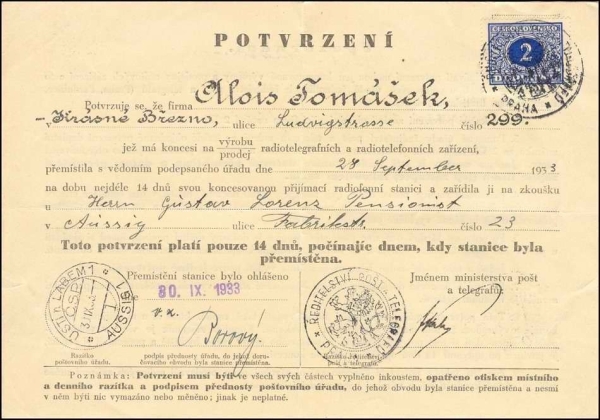 POTVRZENÍ
ČESKOSLOVENSKO
2
PRAHA
Potvrzuje se, že firma Alois Tomášek,
- Krásné Březno, ulice Ludvigstrasse číslo 299.
jež má koncesi na výrobu
prodej radiotelegrafních a radiotelefonních zařízení,
přemístila s vědomím podepsaného úřadu dne 28 September 1933
na dobu nejdéle 14 dnů svou koncesovanou přijímací radiofonní stanici a zařídila ji na zkoušku
u Herrn Gustav Lorenz Pensionist
v Aussig ulice Fabrikstr. číslo 23
Toto potvrzení platí pouze 14 dnů, počínajíc dnem, kdy stanice byla
přemístěna.
Přemístění stanice bylo ohlášeno
30. IX. 1933
v.z.
Borový.
Jménem ministerstva pošt
a telegrafů:
ÚSTÍ n. LABEM 1
ČSP
AUSSIG 1
ŘEDITELSTVÍ POŠT A TELEGRAFŮ
Razítko
poštovního úřadu.
podpis přednosty úřadu, do jehož doru-
čovacího obvodu byla stanice přemístěna.
Razítko ředitelství
pošt a telegrafů.
Poznámka: Potvrzení musí býti ve všech svých částech vyplněno inkoustem, opatřeno otiskem místního
a denního razítka a podpisem přednosty poštovního úřadu, do jehož obvodu byla stanice přemístěna a nesmí
v něm býti nic vymazáno nebo měněno; jinak je neplatné.